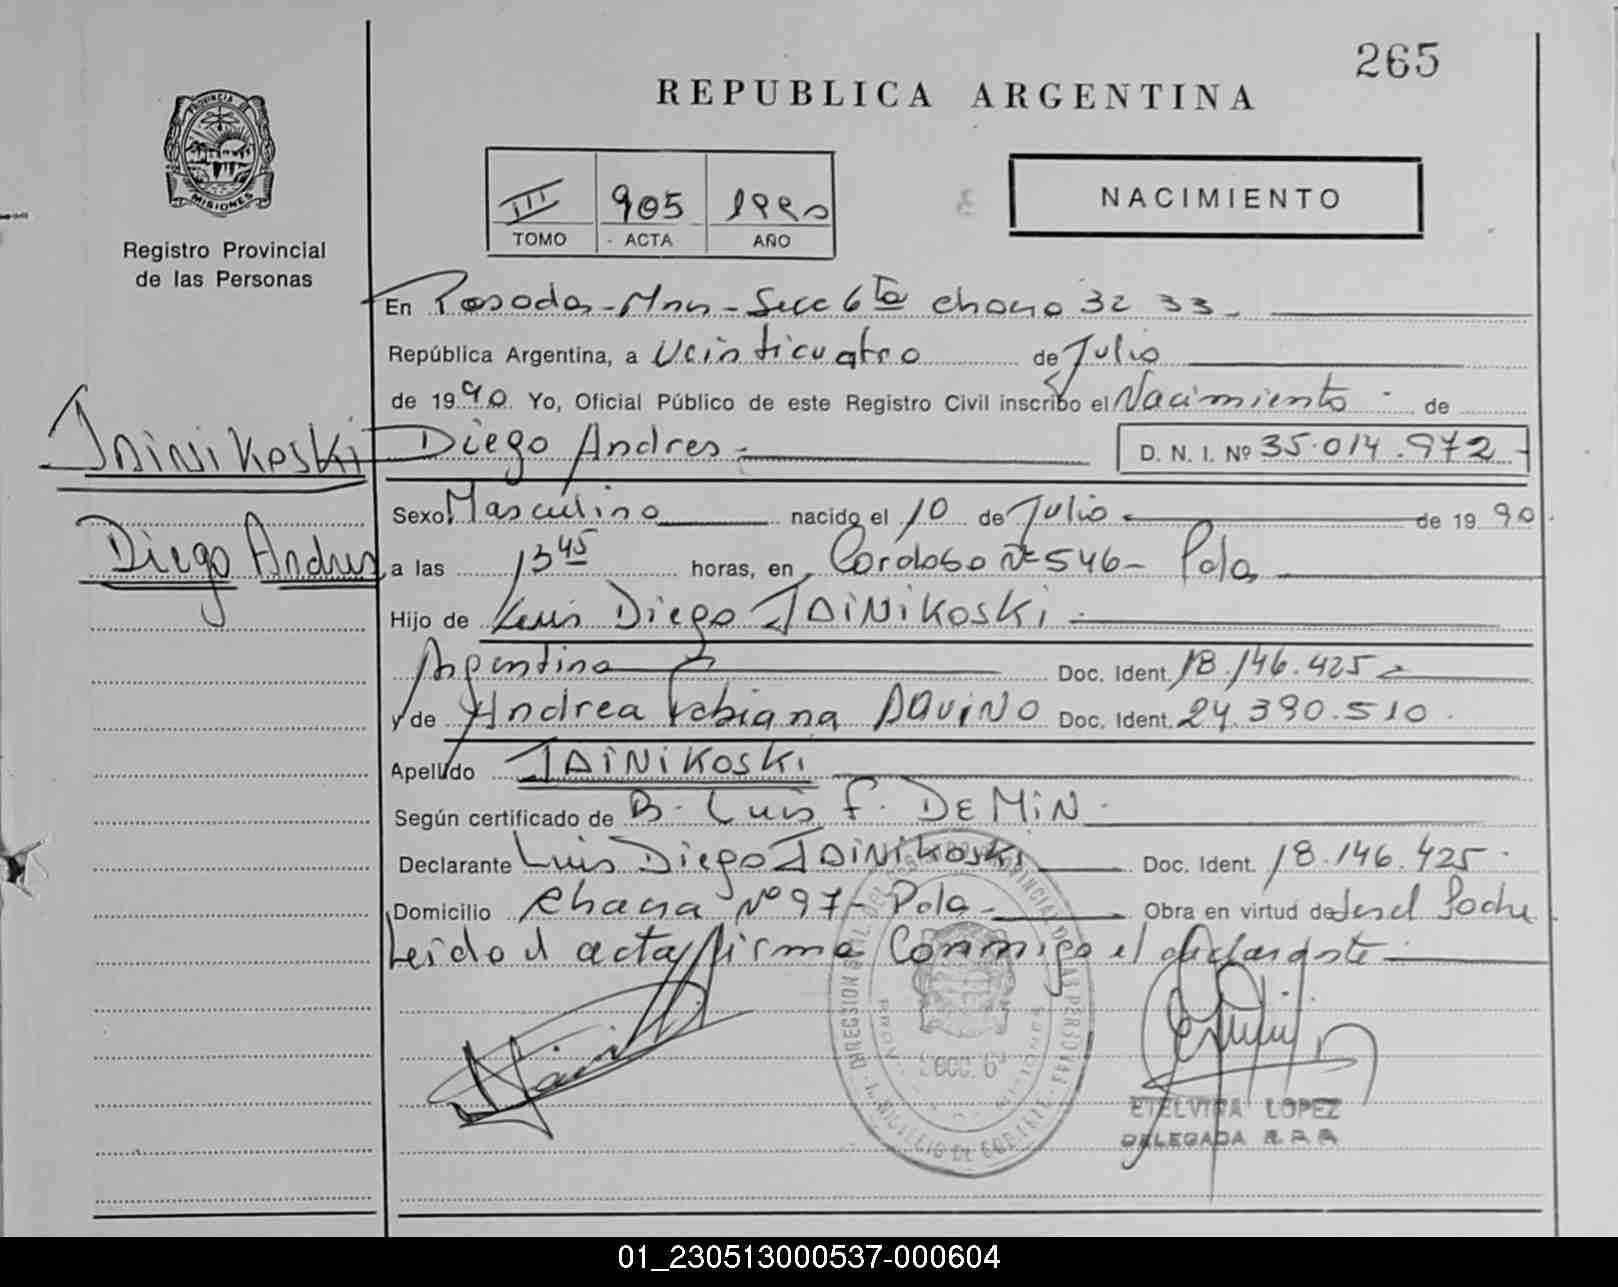 265
REPUBLICA ARGENTINA
PROVINCIA DE
MISIONES
Registro Provincial
de las Personas
III 905 1990
TOMO ACTA AÑO
NACIMIENTO
En Posadas - Mnes - Secc 6ta chaco 32 33
República Argentina, a Veinticuatro de Julio
de 1990 Yo, Oficial Público de este Registro Civil inscribo el Nacimiento de
JAINIKOSKI Diego Andres D. N. I. Nº 35.014.972
Sexo Masculino nacido el 10 de Julio de 1990
Diego Andres a las 13 45 horas, en Cordoba Nº 546 - Pdas
Hijo de Luis Diego JAINIKOSKI
Argentina Doc. Ident. 18.146.425
y de Andrea Fabiana AQUINO Doc. Ident. 24.390.510
Apellido JAINIKOSKI
Según certificado de Luis F. DEMIN
Declarante Luis Diego JAINIKOSKI Doc. Ident. 18.146.425
Domicilio Nº 97 - Pdas Obra en virtud de ser el Padre
Leido el acta firma Conmigo el declarante
SECC. 6ª
ETELVIRA LOPEZ
DELEGADA R.P.P.
01_230513000537-000604